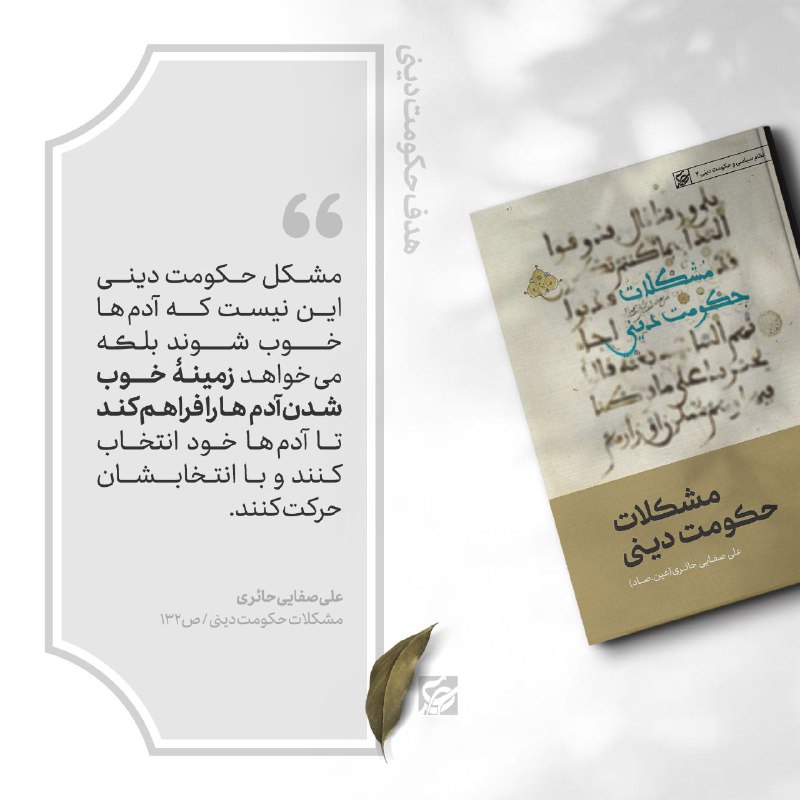 هدف حکومت دینی
مشکل حکومت دینی
این نیست که آدم‌ها
خوب شوند بلکه
می‌خواهد زمینهٔ خوب
شدن آدم‌ها را فراهم کند
تا آدم‌ها خود انتخاب
کنند و با انتخابشان
حرکت کنند.
علی صفایی حائری
مشکلات حکومت دینی / ص ۱۳۲
نظام سیاسی و حکومت دینی ۲
مشکلات
حکومت دینی
مشکلات
حکومت دینی
علی صفایی حائری (عین.صاد)